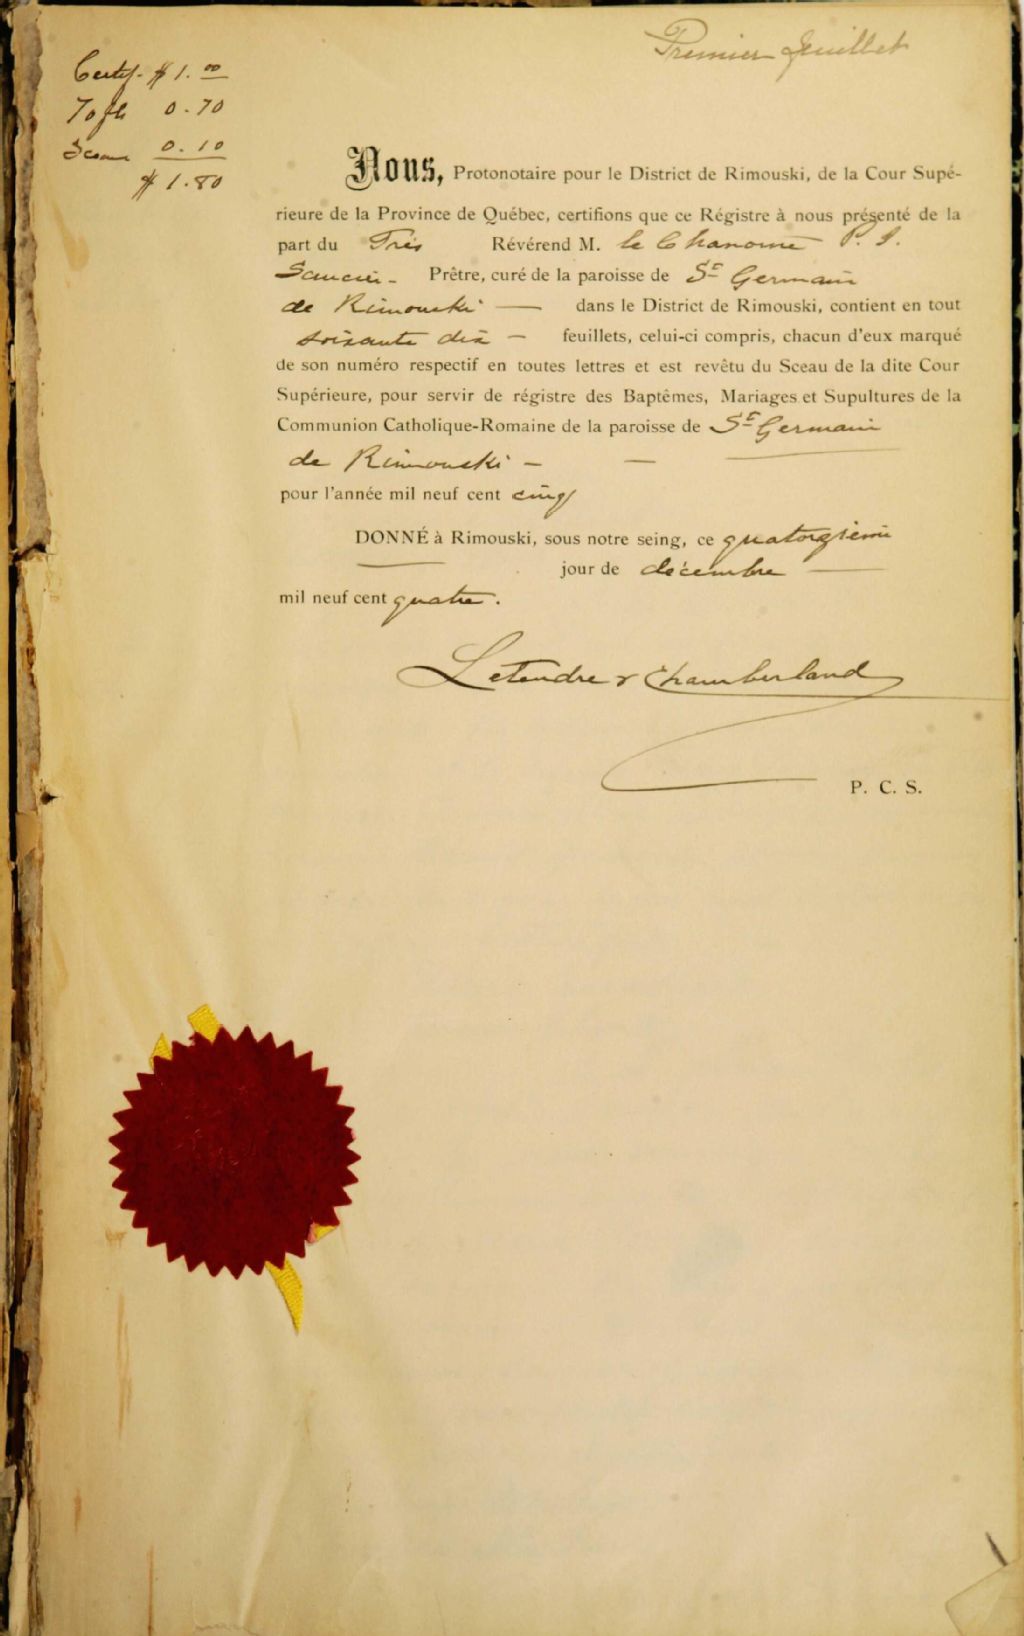 Premier feuillet
Certif. $ 1.00
70 fts 0.70
Sceau 0.10
$ 1.80
Nous, Protonotaire pour le District de Rimouski, de la Cour Supé-
rieure de la Province de Québec, certifions que ce Régistre à nous présenté de la
part du Très Révérend M. le Chanoine P. S.
Saucier - Prêtre, curé de la paroisse de St Germain
de Rimouski — dans le District de Rimouski, contient en tout
soixante dix - feuillets, celui-ci compris, chacun d'eux marqué
de son numéro respectif en toutes lettres et est revêtu du Sceau de la dite Cour
Supérieure, pour servir de régistre des Baptêmes, Mariages et Supultures de la
Communion Catholique-Romaine de la paroisse de St Germain
de Rimouski - —
pour l'année mil neuf cent cinq
DONNÉ à Rimouski, sous notre seing, ce quatorzième
— jour de décembre —
mil neuf cent quatre.
Letendre & Chamberland
P. C. S.